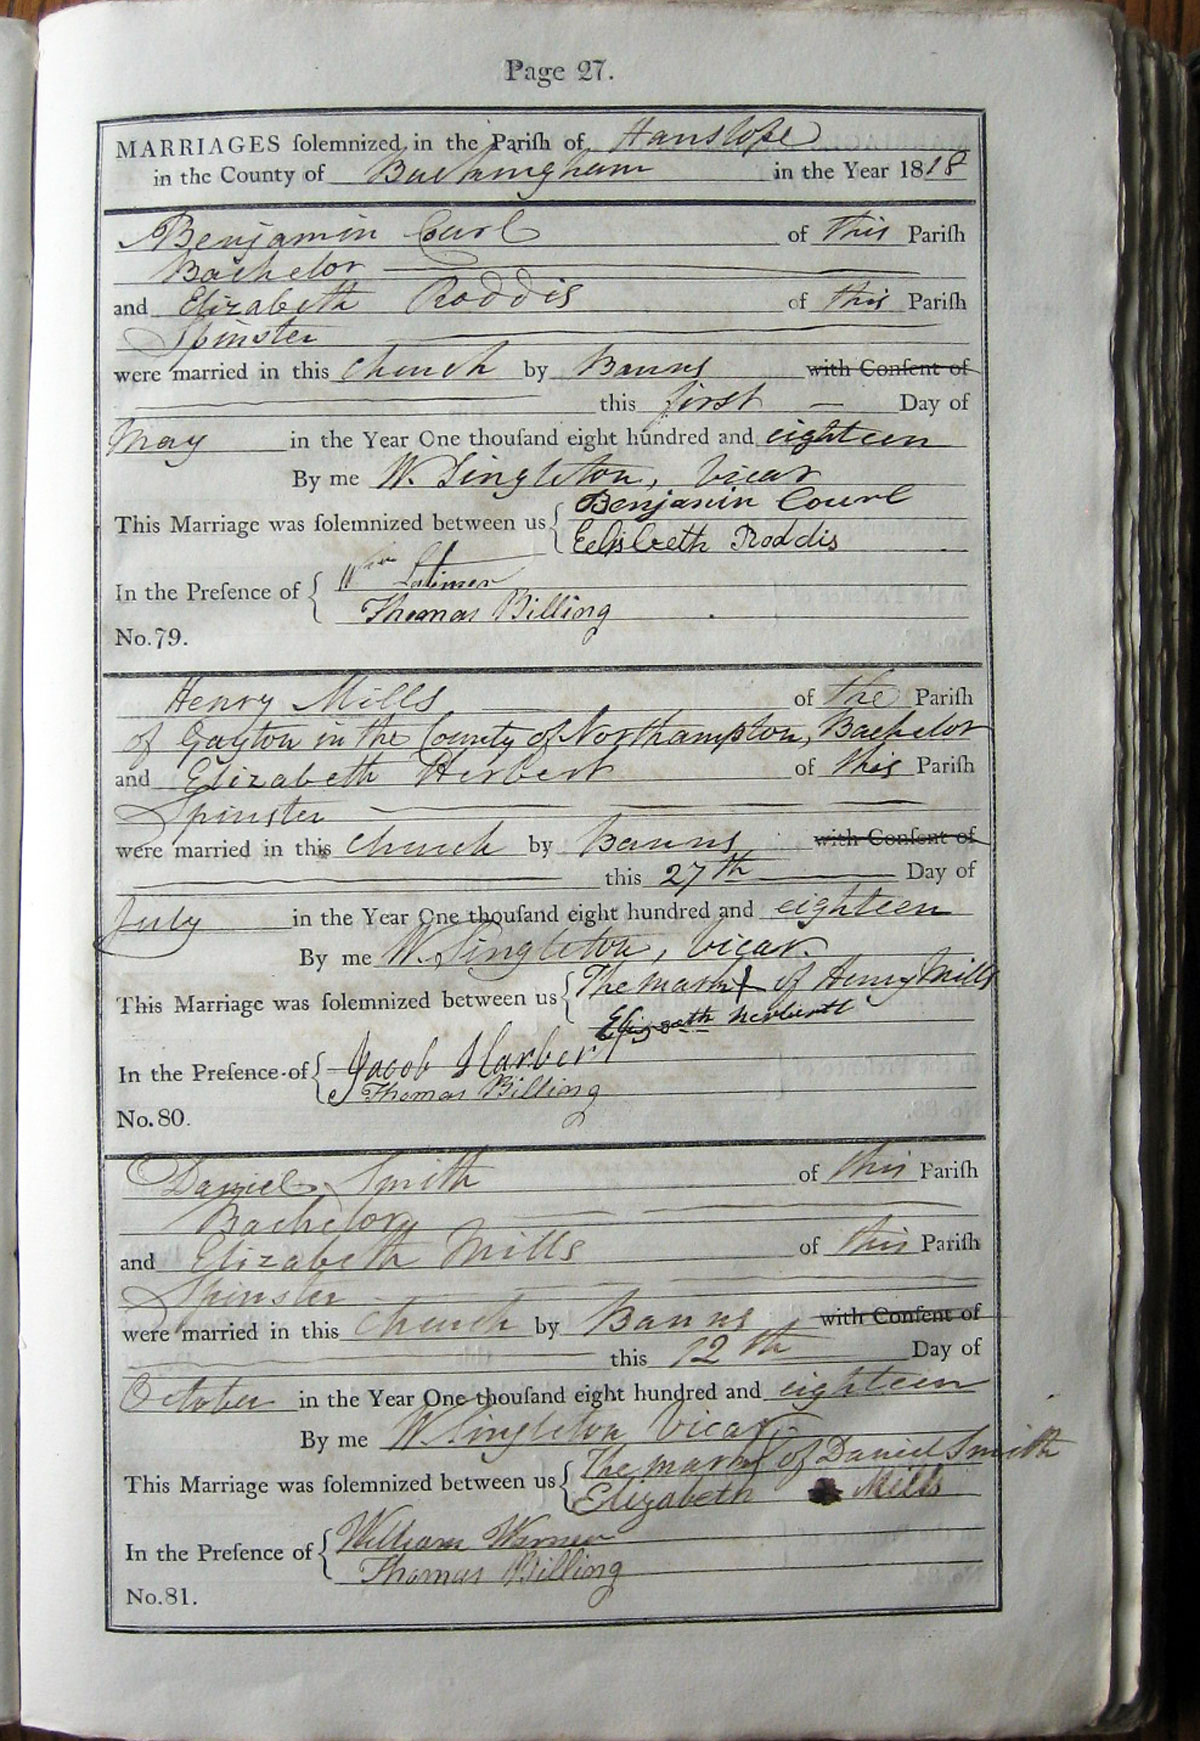 Page 27.
MARRIAGES solemnized in the Parish of Hanslope
in the County of Buckingham in the Year 1818
Benjamin Curl of this Parish
Bachelor
and Elizabeth Roddis of this Parish
Spinster
were married in this Church by Banns with Consent of
this first Day of
May in the Year One thousand eight hundred and eighteen
By me W. Singleton, Vicar
This Marriage was solemnized between us Benjamin Courl
Eelisbeth Roddis
In the Presence of Wm Latimer
Thomas Billing
No. 79.
Henry Mills of the Parish
of Gayton in the County of Northampton, Bachelor
and Elizabeth Herbert of this Parish
Spinster
were married in this Church by Banns with Consent of
this 27th Day of
July in the Year One thousand eight hundred and eighteen
By me W. Singleton, Vicar.
This Marriage was solemnized between us The mark of Henry Mills
In the Presence of Jacob Harbert
Thomas Billing
No. 80.
Daniel Smith of this Parish
Bachelor
and Elizabeth Mills of this Parish
Spinster
were married in this Church by Banns with Consent of
this 12th Day of
October in the Year One thousand eight hundred and eighteen
By me W. Singleton Vicar.
This Marriage was solemnized between us The mark of Daniel Smith
Elizabeth Mills
In the Presence of William Warner
Thomas Billing
No. 81.